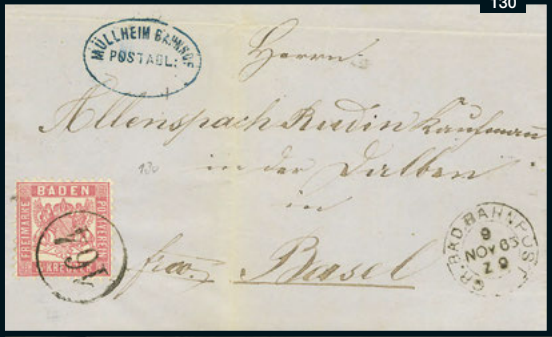 130
MÜLLHEIM BAHNHOF
POSTABL:
Herrn
Allenspach Rudin Kaufmann
in der Dalben
in
franco Basel
BADEN
FREIMARKE
POSTVEREIN
KREUZER
104
GR. BAD. BAHNPOST
9
NOV 65
Z 9